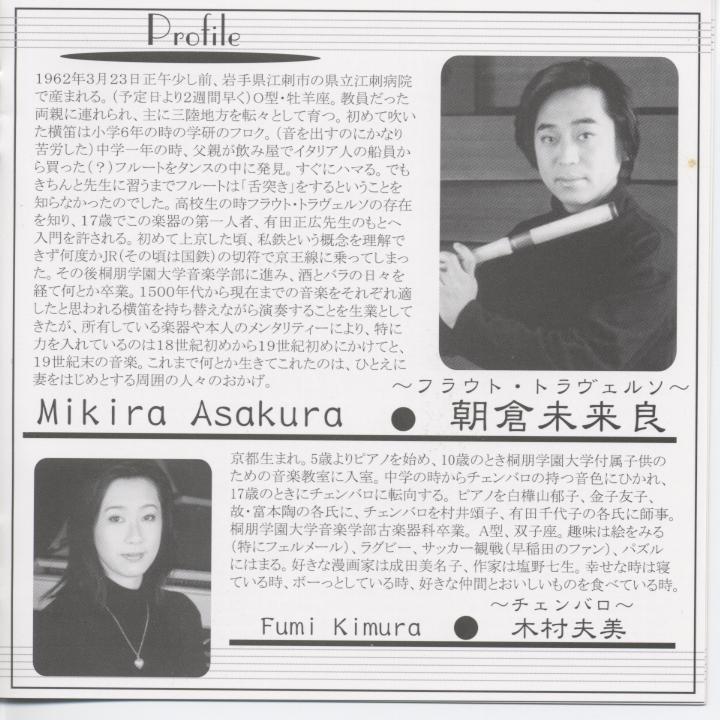 Profile
1962年3月23日正午少し前、岩手県江刺市の県立江刺病院
で産まれる。（予定日より2週間早く）O型・牡羊座。教員だった
両親に連れられ、主に三陸地方を転々として育つ。初めて吹い
た横笛は小学6年の時の学研のフロク。（音を出すのにかなり
苦労した）中学一年の時、父親が飲み屋でイタリア人の船員か
ら買った（？）フルートをタンスの中に発見。すぐにハマる。でも
きちんと先生に習うまでフルートは「舌突き」をするということを
知らなかったのでした。高校生の時フラウト・トラヴェルソの存在
を知り、17歳でこの楽器の第一人者、有田正広先生のもとへ
入門を許される。初めて上京した頃、私鉄という概念を理解で
きず何度かJR（その頃は国鉄）の切符で京王線に乗ってしまっ
た。その後桐朋学園大学音楽学部に進み、酒とバラの日々を
経て何とか卒業。1500年代から現在までの音楽をそれぞれ適
したと思われる横笛を持ち替えながら演奏することを生業として
きたが、所有している楽器や本人のメンタリティーにより、特に
力を入れているのは18世紀初めから19世紀初めにかけてと、
19世紀末の音楽。これまで何とか生きてこれたのは、ひとえに
妻をはじめとする周囲の人々のおかげ。
〜フラウト・トラヴェルソ〜
Mikira Asakura ● 朝倉未来良
京都生まれ。5歳よりピアノを始め、10歳のとき桐朋学園大学付属子供の
ための音楽教室に入室。中学の時からチェンバロの持つ音色にひかれ、
17歳のときにチェンバロに転向する。ピアノを白樺山郁子、金子友子、
故・富本陶の各氏に、チェンバロを村井頌子、有田千代子の各氏に師事。
桐朋学園大学音楽学部古楽器科卒業。A型、双子座。趣味は絵をみる
（特にフェルメール）、ラグビー、サッカー観戦（早稲田のファン）、パズル
にはまる。好きな漫画家は成田美名子、作家は塩野七生。幸せな時は寝
ている時、ボーっとしている時、好きな仲間とおいしいものを食べている時。
〜チェンバロ〜
Fumi Kimura ● 木村夫美